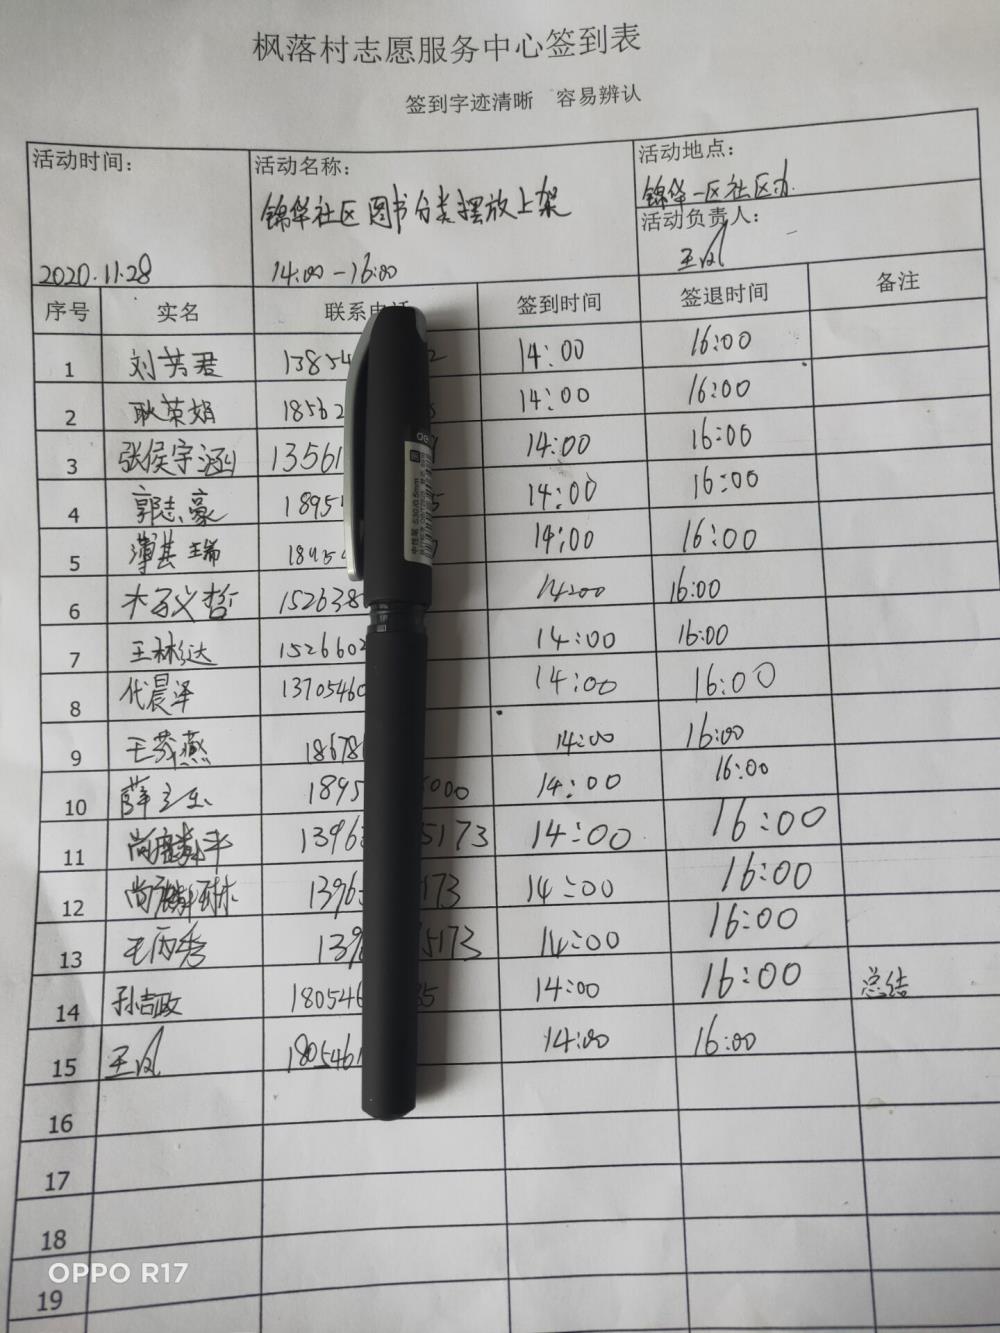 枫落村志愿服务中心签到表
签到字迹清晰 容易辨认
活动时间: 活动名称: 活动地点:
锦华社区图书分类摆放上架 锦华一区社区办
活动负责人:
2020.11.28 14:00-16:00 王凤
序号 实名 联系电话 签到时间 签退时间 备注
1 刘芸君 13854 2 14:00 16:00
2 耿荣娟 18562 14:00 16:00
3 张侯宇涵 13561 14:00 16:00
4 郭志豪 1895 5 14:00 16:00
5 瑞 14:00 16:00
6 152638 14:00 16:00
7 王彬达 1526602 14:00 16:00
8 代晨泽 13705460 14:00 16:00
9 王燕 18678 14:00 16:00
10 薛 1895 000 14:00 16:00
11 尚麟 1396 5173 14:00 16:00
12 尚麟 1396 173 14:00 16:00
13 王丙秀 139 5173 14:00 16:00
14 孙吉政 180546 35 14:00 16:00 总结
15 王凤 1805461 14:00 16:00
16
17
18
19
OPPO R17